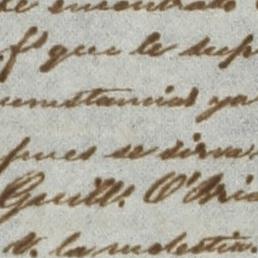 de encontrado
fs que le
cunstancias ya
pues se sirva
Guills. O'Bri
V. la molestia.